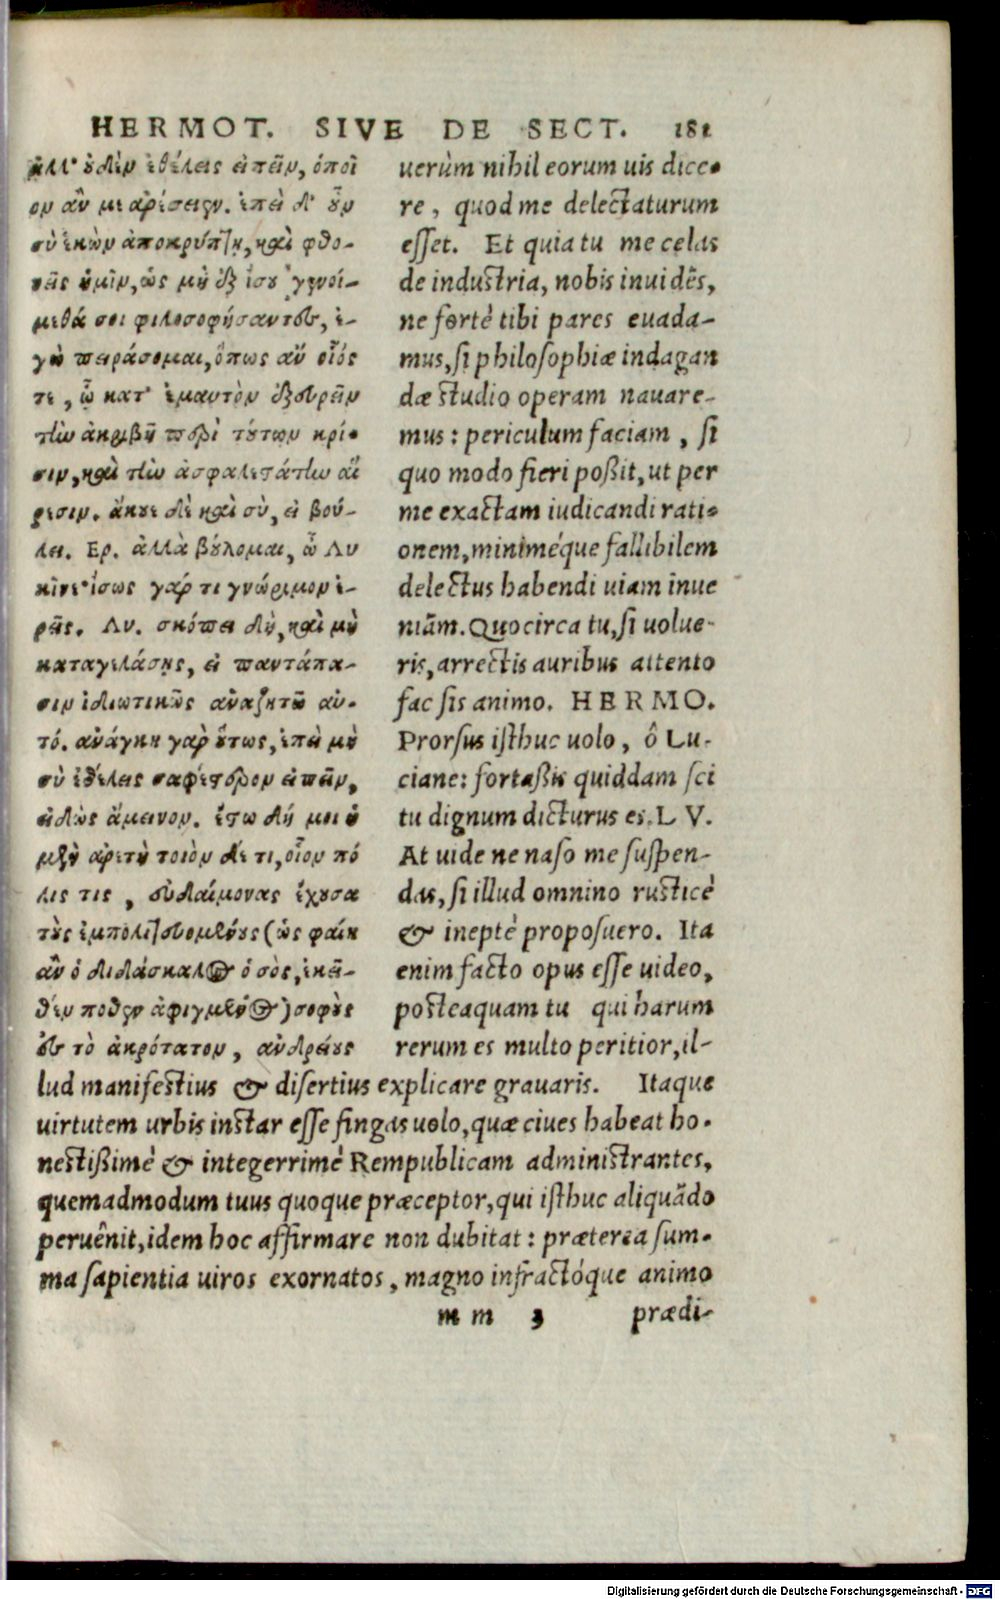 HERMOT. SIVE DE SECT. 181
ἀλλ' οὐδὲν ἐθέλεις εἰπεῖν, ὁποῖ
ον ἄν με ἀρέσειεν. ἐπεὶ δ' οὖν
σὺ ἑκὼν ἀποκρύπτῃ, καὶ φθο-
νεῖς ἡμῖν, ὡς μὴ ἐξ ἴσου γενοί-
μεθά σοι φιλοσοφήσαντες, ἐ-
γὼ πειράσομαι, ὅπως ἂν οἷός
τε, ᾦ κατ' ἐμαυτὸν ἐξευρεῖν
τὴν ἀκριβῆ περὶ τούτων κρί-
σιν, καὶ τὴν ἀσφαλεστάτην αἵ
ρεσιν. ἄκουε δὲ καὶ σὺ, εἰ βού-
λει. Ερ. ἀλλὰ βούλομαι, ὦ Λυ
κῖνε· ἴσως γάρ τι γνώριμον ἐ-
ρεῖς. Λυ. σκόπει δὴ, καὶ μὴ
καταγελάσῃς, εἰ παντάπα-
σιν ἰδιωτικῶς ἀναζητῶ αὐ-
τό. ἀνάγκη γὰρ οὕτως, ἐπεὶ μὴ
σὺ ἐθέλεις σαφέστερον εἰπεῖν,
εἰδὼς ἄμεινον. ἔστω δή μοι ἡ
μὲν ἀρετὴ τοιόν δέ τι, οἷον πό
λις τις, εὐδαίμονας ἔχουσα
τοὺς ἐμπολιτευομένους (ὡς φαίη
ἂν ὁ διδάσκαλος ὁ σὸς, ἐκεῖ-
θέν ποθεν ἀφιγμένος) σοφοὺς
ἐς τὸ ἀκρότατον, ἀνδρείους
uerùm nihil eorum uis dice-
re, quod me delectaturum
esset. Et quia tu me celas
de industria, nobis inuidẽs,
ne fortè tibi pares euada-
mus, si philosophiæ indagan
dæ studio operam nauare-
mus: periculum faciam, si
quo modo fieri poßit, ut per
me exactam iudicandi rati-
onem, minimeq́ue fallibilem
delectus habendi uiam inue
niãm. Quocirca tu, si uolue-
ris, arrectis auribus attento
fac sis animo. HERMO.
Prorsus isthuc uolo, ô Lu-
ciane: fortaßis quiddam sci
tu dignum dicturus es. LV.
At uide ne naso me suspen-
das, si illud omnino rusticè
& ineptè proposuero. Ita
enim facto opus esse uideo,
posteaquam tu qui harum
rerum es multo peritior, il-
lud manifestius & disertius explicare grauaris. Itaque
uirtutem urbis instar esse fingas uolo, quæ ciues habeat ho-
nestißimè & integerrimè Rempublicam administrantes,
quemadmodum tuus quoque præceptor, qui isthuc aliquãdo
peruênit, idem hoc affirmare non dubitat: præterea sum-
ma sapientia uiros exornatos, magno infractóque animo
mm 3 prædi-
Digitalisierung gefördert durch die Deutsche Forschungsgemeinschaft - DFG